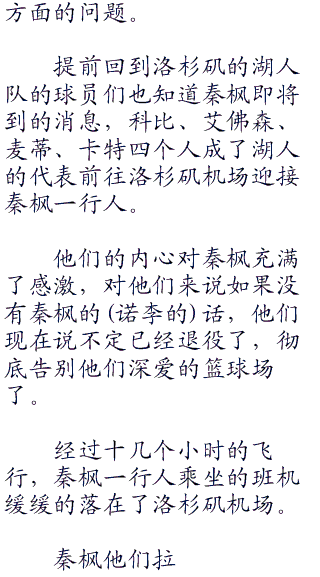 方面的问题。
提前回到洛杉矶的湖人
队的球员们也知道秦枫即将
到的消息，科比、艾佛森、
麦蒂、卡特四个人成了湖人
的代表前往洛杉矶机场迎接
秦枫一行人。
他们的内心对秦枫充满
了感激，对他们来说如果没
有秦枫的(诺李的)话，他们
现在说不定已经退役了，彻
底告别他们深爱的篮球场
了。
经过十几个小时的飞
行，秦枫一行人乘坐的班机
缓缓的落在了洛杉矶机场。
秦枫他们拉